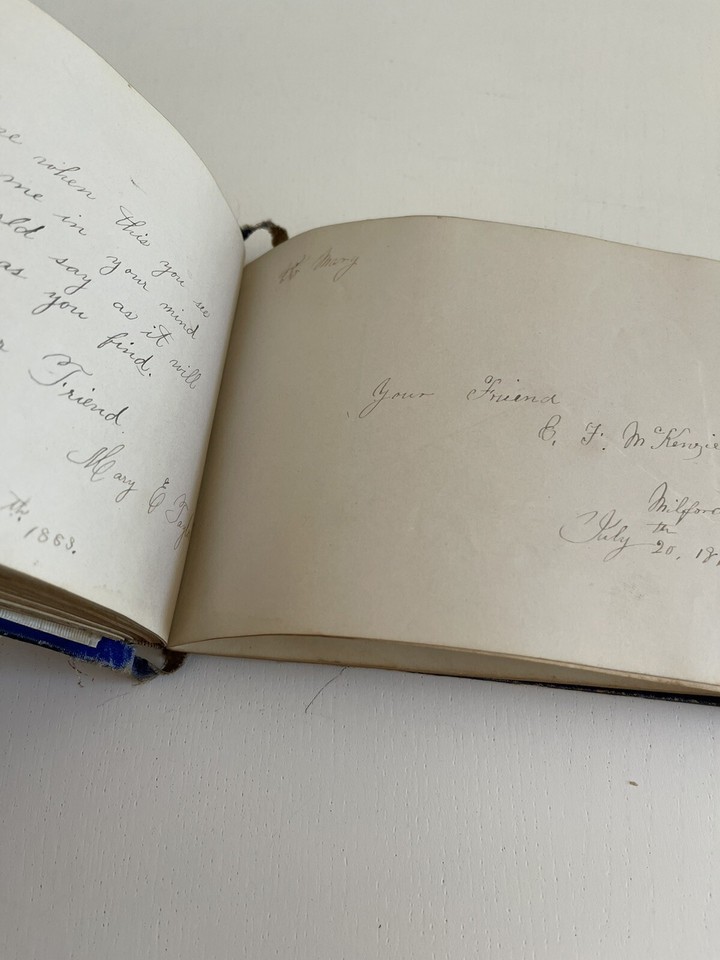 when this you see
me in your mind
say as it will
as you find.
Friend.
Mary E
th. 1863.
Mary
Your Friend
C. F. McKenzie
July 20th, 18